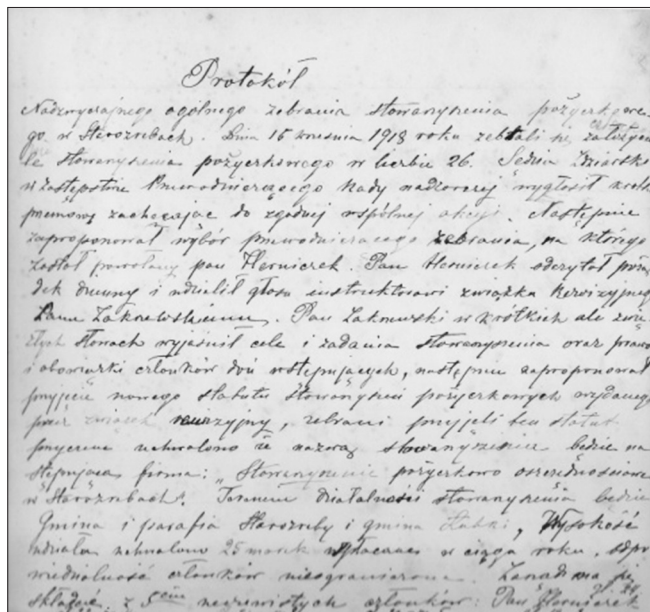 Protokół
Nadzwyczajnego ogólnego zebrania stowarzyszenia pożyczkowe-
go w Starozrebach. Dnia 15 września 1918 roku zebrali się założycie
le stowarzyszenia pożyczkowego w liczbie 26. Sędzia
w zastępstwie Przewodniczącego Rady nadzorczej wygłosił krótk
przemowę zachęcając do zgodnej wspólnej akcyi. Następnie
zaproponował wybór przewodniczącego zebrania, na którego
został powołany pan Herniczek. Pan Herniczek odczytał porzą
dek dzienny i udzielił głosu instruktorowi związku Rewizyjnego
Panu Zakrzewskiemu. Pan Zakrzewski w krótkich ale zwię
złych słowach wyjaśnił cele i zadania stowarzyszenia oraz prawa
i obowiązki członków doń wstępujących, następnie zaproponował
przyjęcie nowego statutu stowarzyszeń pożyczkowych wydanego
przez związek rewizyjny, zebrani przyjęli ten statut
przyczem uchwalono że nazwą stowarzyszenia będzie na
stępująca firma: „Stowarzyszenie pożyczkowo oszczędnościowe
w Starozrebach". Terenem działalności stowarzyszenia będzie
Gmina i parafia Starozreby i gmina , Wysokość
udziału uchwalono 25 marek w ciągu roku, odpo
wiedzialność członków nieograniczona. Zarząd ma się
składać z 5ciu rzeczywistych członków: Pan